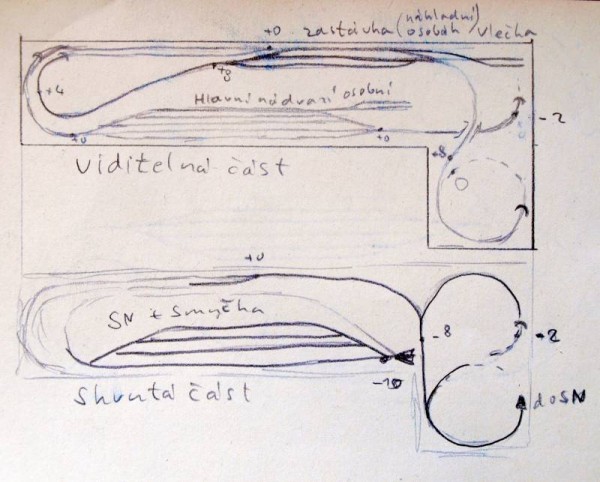 +0 zastávka (nákladní osobák) vlečka
+8
+4
Hlavní nádraží osobní
+0
+0
-2
+8
0
Viditelná část
+0
SN + Smyčka
-8
-2
-10
do SN
Skrytá část